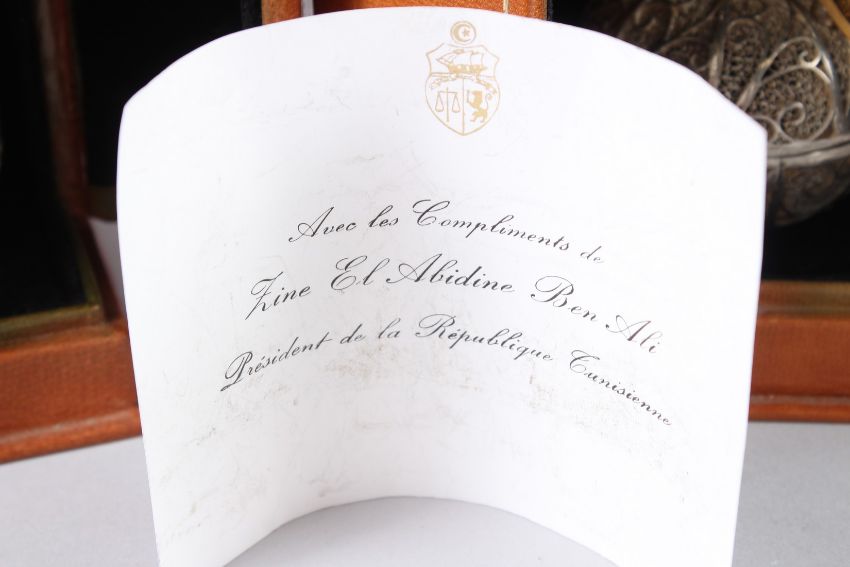 Avec les Compliments de
Zine El Abidine Ben Ali
Président de la République Tunisienne